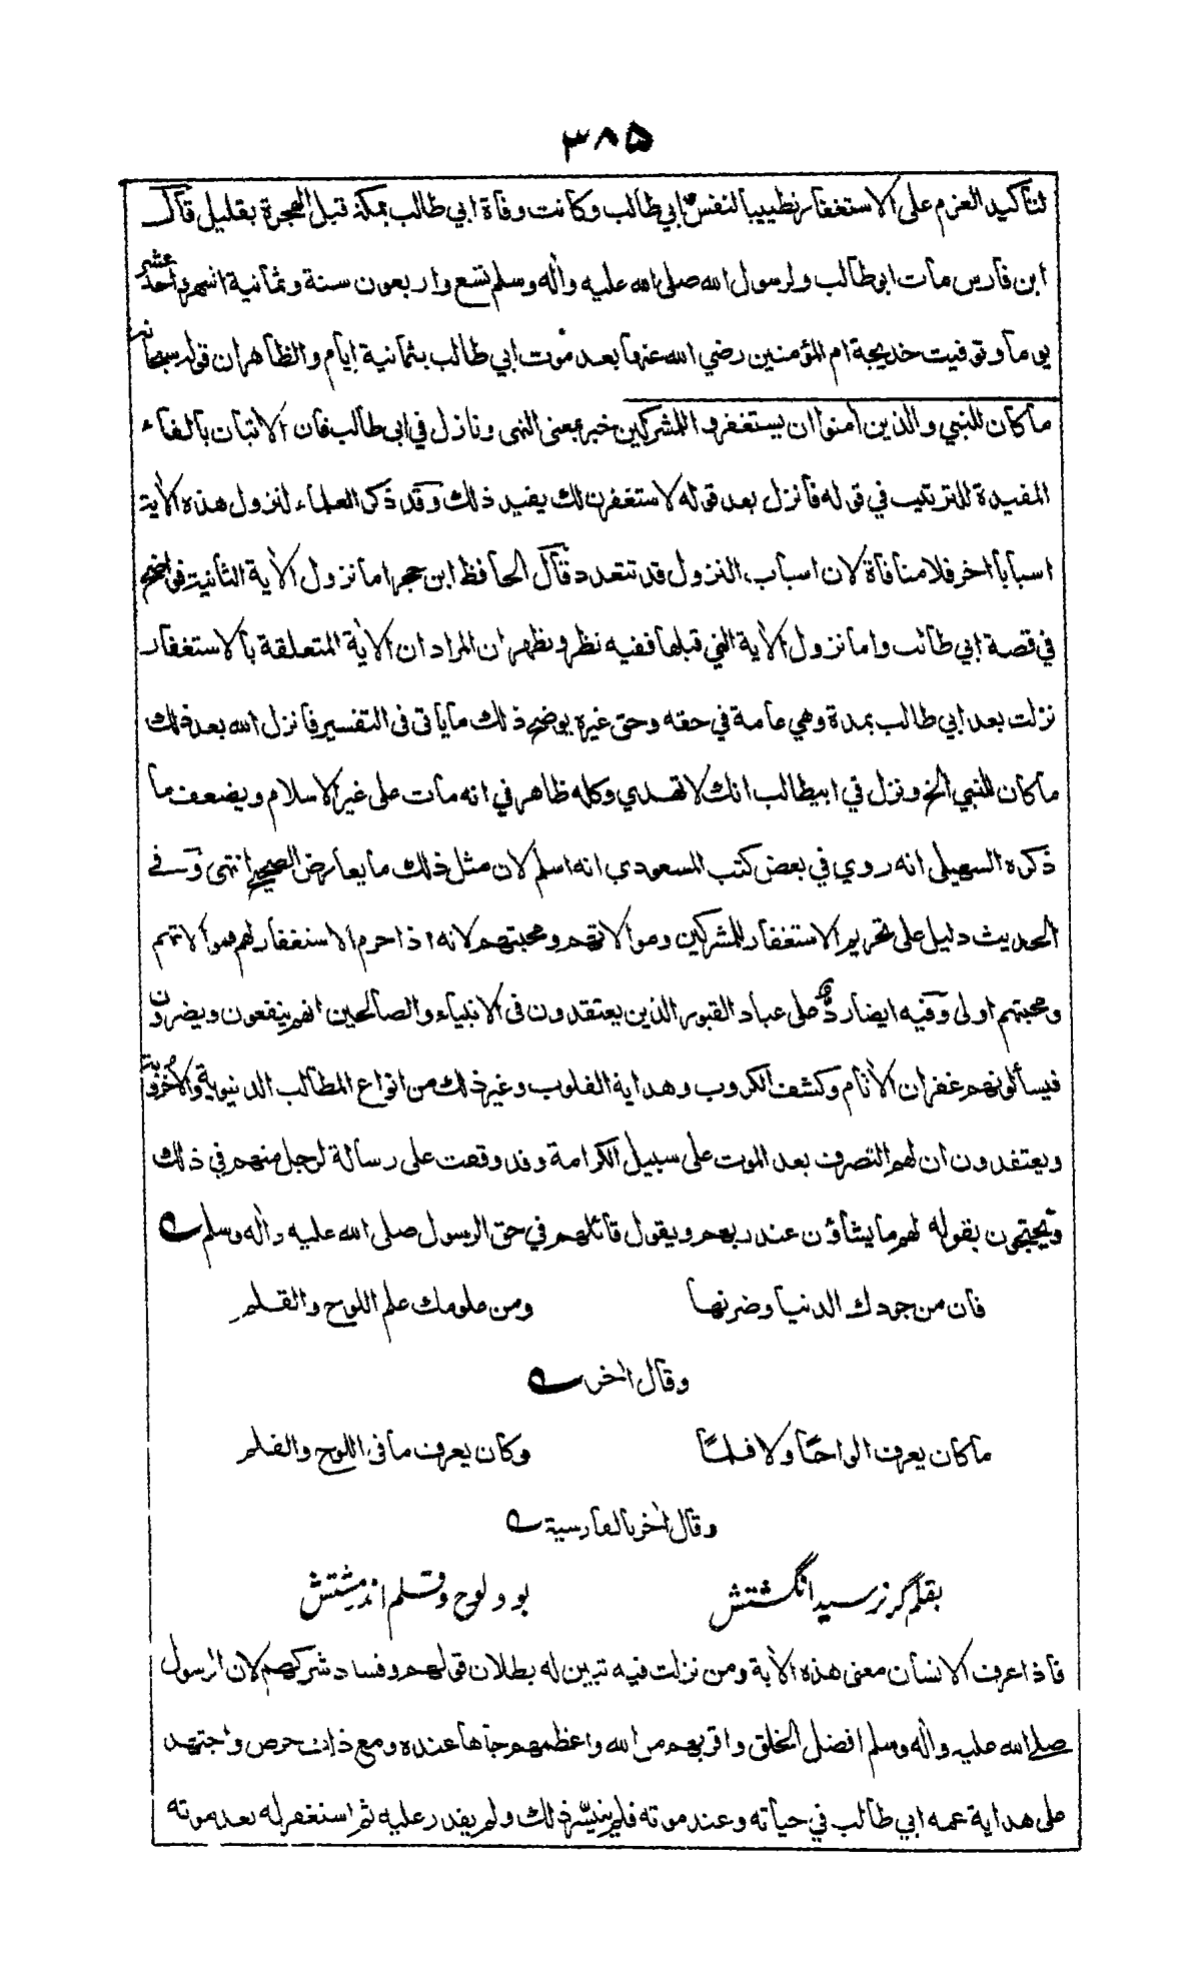 ٣٨٥
لتأكيد العزم على الاستغفار تطييبا لنفس ابي طالب وكانت وفاة ابي طالب بمكة قبل الهجرة بقليل قال
ابن فارس مات ابو طالب ولرسول الله صلى الله عليه وآله وسلم تسع واربعون سنة وثمانية اشهر واحد عشر
يوما وتوفيت خديجة ام المؤمنين رضي الله عنها بعد موت ابي طالب بثمانية ايام والظاهر ان قوله سبحانه
ما كان للنبي والذين آمنوا ان يستغفروا للمشركين خبر بمعنى النهى ونازل في ابى طالب فان الاتيان بالفاء
المفيدة للترتيب في قوله فانزل بعد قوله لاستغفرن لك يفيد ذلك وقد ذكر العلماء لنزول هذه الآية
اسبابا اخر فلا منافاة لان اسباب النزول قد تتعدد قال الحافظ ابن حجر اما نزول الآية الثانية فواضح
في قصة ابي طالب واما نزول الآية التي قبلها ففيه نظر ويظهر ان المراد ان الآية المتعلقة بالاستغفار
نزلت بعد ابي طالب بمدة وهي عامة في حقه وحق غيره يوضح ذلك ما ياتى فى التفسير فانزل الله بعد ذلك
ما كان للنبي الخ ونزل في ابيطالب انك لا تهدي وكله ظاهر في انه مات على غير الاسلام ويضعف ما
ذكره السهيلى انه روي في بعض كتب المسعودي انه اسلم لان مثل ذلك ما يعارض الصحيح انتهى وفي
الحديث دليل على تحريم الاستغفار للمشركين وموالاتهم ومحبتهم لانه اذا حرم الاستغفار لهم فموالاتهم
ومحبتهم اولى وفيه ايضا رد على عباد القبور الذين يعتقدون فى الانبياء والصالحين انهم ينفعون ويضرون
فيسألونهم غفران الآثام وكشف الكروب وهداية القلوب وغير ذلك من انواع المطالب الدنيوية والأخروية
ويعتقدون ان لهم التصرف بعد الموت على سبيل الكرامة وقد وقعت على رسالة لرجل منهم في ذلك
ويحتجون بقوله لهم ما يشاؤن عند ربهم ويقول قائلهم في حق الرسول صلى الله عليه وآله وسلم
فان من جودك الدنيا وضرتها ومن علومك علم اللوح والقلم
وقال آخر
ما كان يعرف الواحًا ولا قلمًا وكان يعرف ما فى اللوح والقلم
وقال آخر بالفارسية
بقلم گر نرسيد انگشتش بود لوح وقلم اندر مشتش
فاذا عرف الانسان معنى هذه الآية ومن نزلت فيه تبين له بطلان قولهم وفساد شركهم لان الرسول
صلى الله عليه وآله وسلم افضل الخلق واقربهم من الله واعظمهم جاها عنده ومع ذلك حرص واجتهد
على هداية عمه ابي طالب في حياته وعند موته فلم يتيسّر ذلك ولم يقدر عليه ثم استغفر له بعد موته